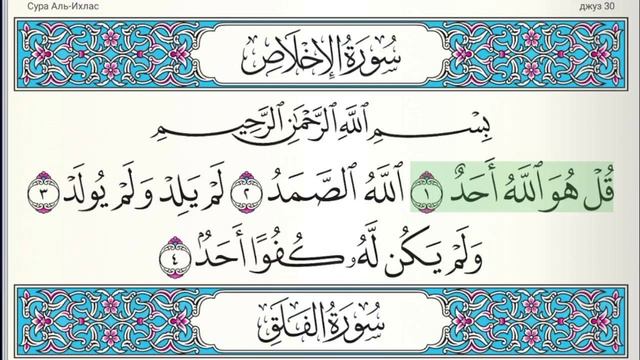 Сура Аль-Ихлас джуз 30
سُورَةُ الإِخْلَاصِ
بِسْمِ ٱللَّهِ ٱلرَّحْمَٰنِ ٱلرَّحِيمِ
قُلْ هُوَ ٱللَّهُ أَحَدٌ ١ ٱللَّهُ ٱلصَّمَدُ ٢ لَمْ يَلِدْ وَلَمْ يُولَدْ ٣
وَلَمْ يَكُن لَّهُۥ كُفُوًا أَحَدٌۢ ٤
سُورَةُ الفَلَقِ